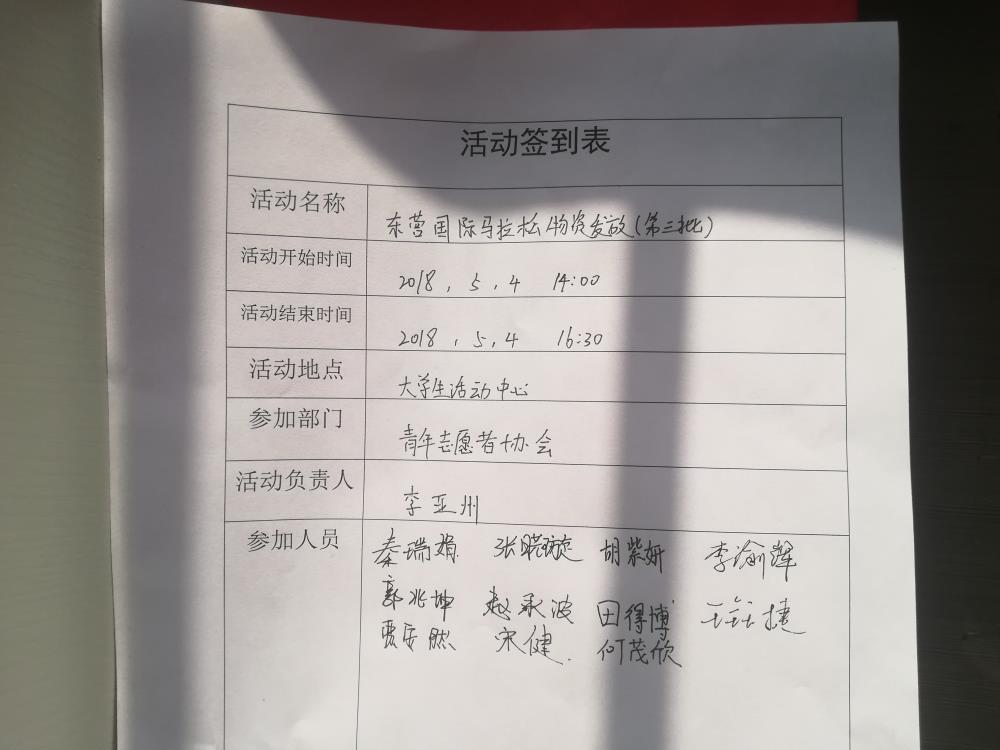 活动签到表
活动名称 东营国际马拉松物资发放(第三批)
活动开始时间 2018.5.4 14:00
活动结束时间 2018.5.4 16:30
活动地点 大学生活动中心
参加部门 青年志愿者协会
活动负责人 李亚州
参加人员 秦瑞娟 张晓璇 胡紫妍 李渝辉
郭兆坤 赵承波 田得博 王钰捷
贾安然 宋健 何茂欣